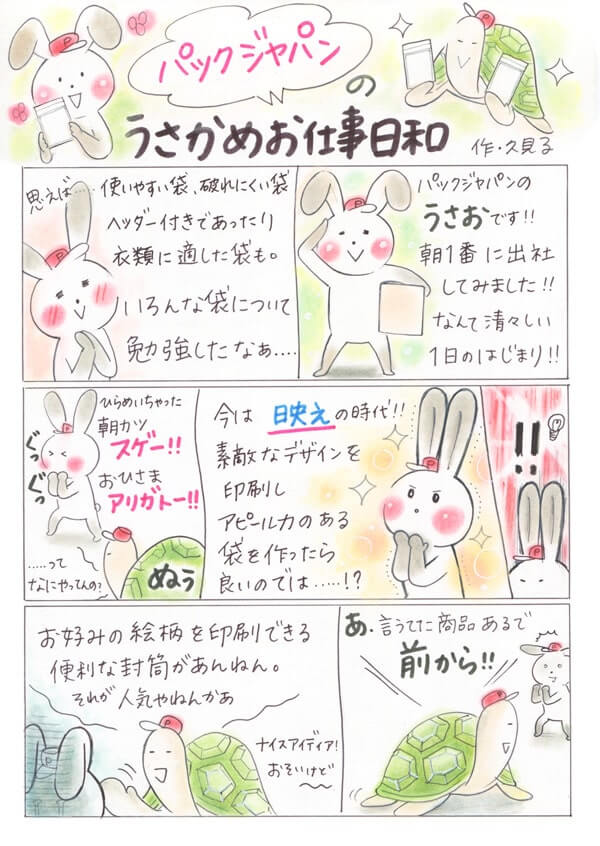 パックジャパン
の
うさかめお仕事日和
作・久見る
パックジャパンの
うさおです!!
朝1番に出社
してみました!!
なんて清々しい
1日のはじまり!!
思えば……使いやすい袋、破れにくい袋
ヘッダー付きであったり
衣類に適した袋も。
いろんな袋について
勉強したなぁ….
!!
今は 映え の時代!!
素敵なデザインを
印刷し
アピール力のある
袋を作ったら
良いのでは……!?
ひらめいちゃった
朝カツ
スゲー!!
おひさま
アリガトー!!
ぐっ
ぐっ
……って
なにやってんの?
ぬぅ
あ、言うてた商品あるで
前から!!
お好みの絵柄を印刷できる
便利な封筒があんねん。
それが人気やねんかぁ
ナイスアイディア!
おそいけど
P
P
P
P
P